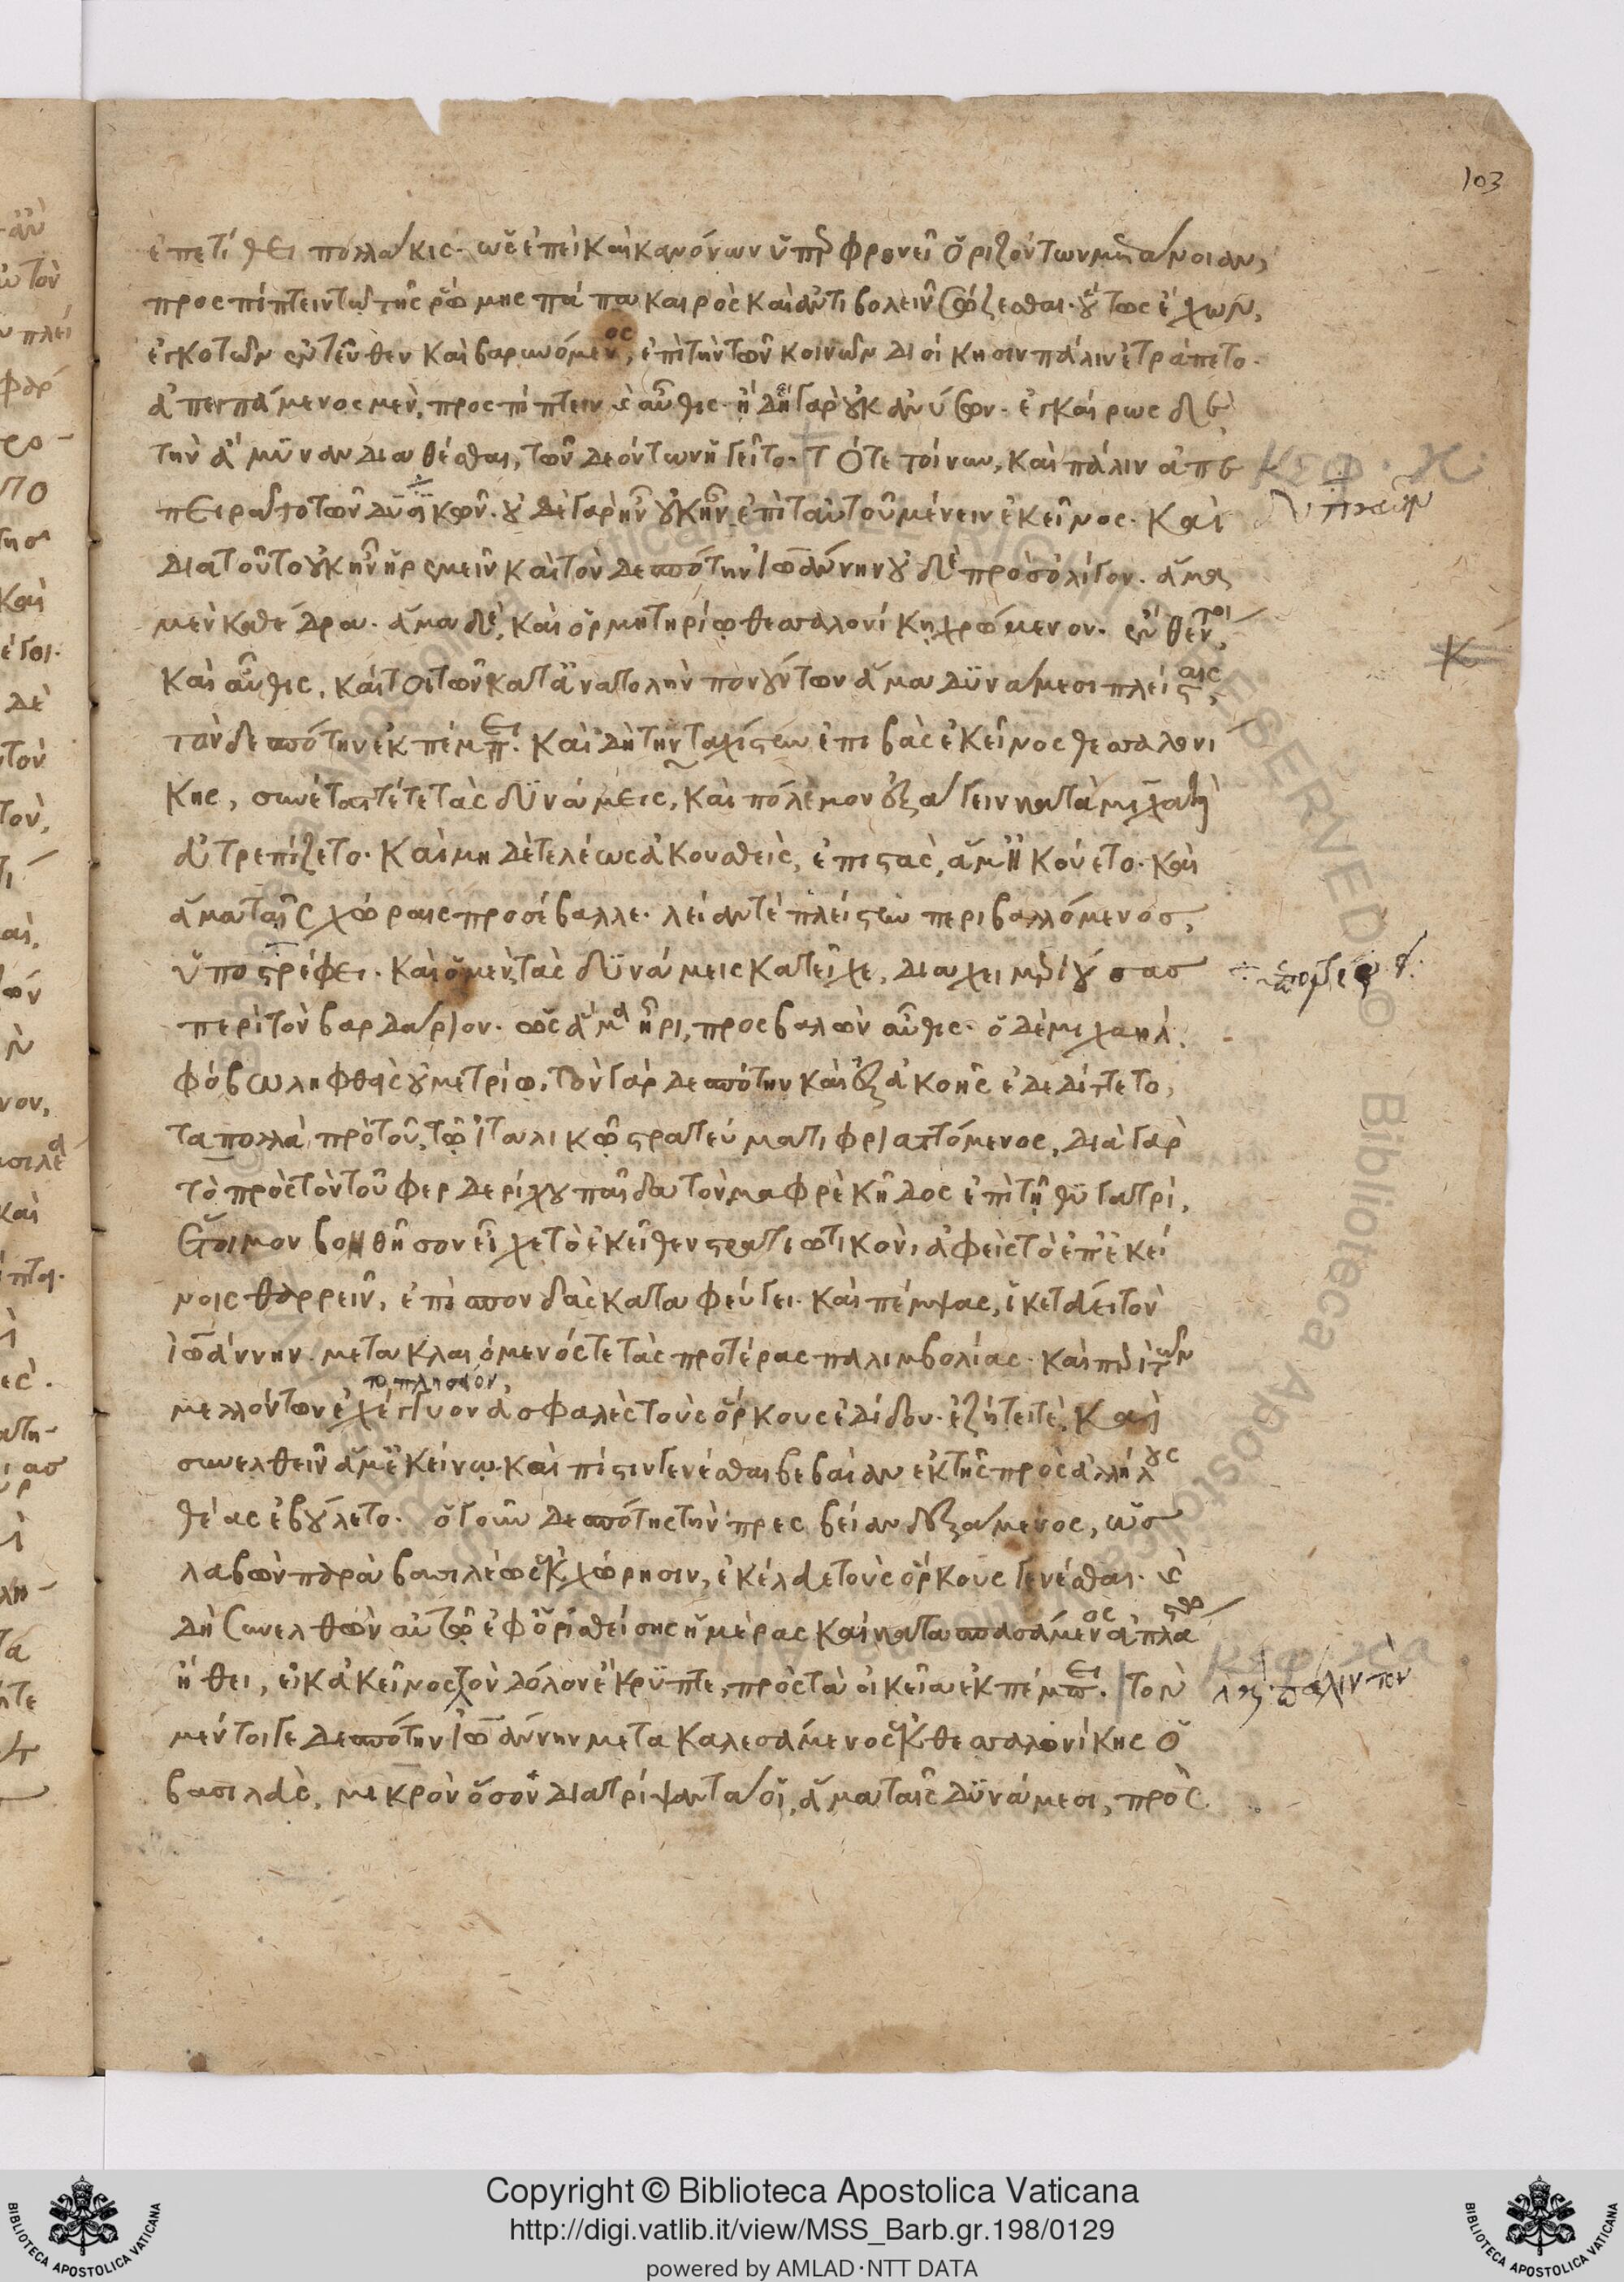 103
ἐπετίθει πολλάκις· ὡς ἐπεὶ καὶ κανόνων ὑπερφρονεῖ ὁριζόντων μετάνοιαν,
προσπίπτειν τῷ τῆς ῥώμης πάπα καιρὸς καὶ ἀντιβολεῖν σώζεσθαι· οὕτως ἔχων,
ἐγκοτῶν ἐντεῦθεν καὶ βαρυνόμενος, ἐπὶ τὴν τῶν κοινῶν διοίκησιν πάλιν ἐτράπετο·
προσπίπτειν καὶ αὖθις· ἤδη γὰρ οὐκ ἀνύσων·
τὴν ἄμυναν διαθέσθαι, τῶν δεόντων ἡγεῖτο· Τότε τοίνυν, καὶ πάλιν ἀπε κεφ. κ
πειρᾶτο τῶν δυτικῶν· οὐδὲ γὰρ ἦν οὐκ ἦν ἐπὶ ταυτοῦ μένειν ἐκεῖνος· καὶ
διατοῦτο οὐκ ἦν ἠρεμεῖν καὶ τὸν δεσπότην ἰωάννην οὐδὲ πρὸς ὀλίγον· ἅμα
μὲν καθέδρα· ἅμα δὲ, καὶ ὁρμητηρίῳ θεσσαλονίκη χρώμενον·
καὶ αὖθις, καίτοι τῶν κατ ἀνατολὴν πονούντων ἅμα δυνάμεσι πλείσταις,
τὸν δεσπότην ἐκπέμπει· καὶ δὴ τὴν ταχίστην ἐπιβὰς ἐκεῖνος θεσσαλονί
κης, συνέταττέ τε τὰς δυνάμεις, καὶ πόλεμον ἐξάγειν κατὰ μιχαὴλ
εὐτρεπίζετο· καὶ μηδὲ τελέως ἀκουσθεὶς, ἐπιστὰς, ἅμ ἠκούετο· καὶ
ἅμα ταῖς χώραις προσέβαλλε· λείαν τὲ πλείστην περιβαλλόμενος,
ὑποστρέφει· καὶ ὁ μὲν τὰς δυνάμεις κατεῖχε, διαχειμαζούσας
περὶ τὸν βαρδάριον· ὡς ἅμα ἦρι, προσβαλὼν αὖθις· ὁ δὲ μιχαὴλ,
φόβω ληφθεὶς οὐ μετρίῳ, τὸν γὰρ δεσπότην καὶ ἐξ ἀκοῆς ἐδεδίττετο,
τὰ πολλὰ πρὸ τοῦ, τῷ ἰταλικῷ στρατεύματι φρυαττόμενος, διὰ γὰρ
τὸ πρὸς τὸν τοῦ φερδερίχου παῖδα τὸν μαφρὲ κῆδος ἐπὶ τῇ θυγατρὶ,
ἕτοιμον βοηθῆσον εἶχε τὸ ἐκεῖθεν στρατιωτικὸν, ἀφεὶς τὸ ἐπ ἐκεί
νοις θαρρεῖν, ἐπὶ σπονδὰς καταφεύγει· καὶ πέμψας, ἱκετεύει τὸν
ἰωάννην· μετακλαιόμενός τε τὰς προτέρας παλιμβολίας· καὶ περὶ τῶν
μελλόντων ἐχέγγυον ἀσφαλὲς τοὺς ὅρκους ἐδίδου· ἐζήτει τὲ, καὶ
συνελθεῖν ἅμ ἐκείνω· καὶ πίστιν γενέσθαι βεβαίαν ἐκ τῆς πρὸς ἀλλήλους
θέας ἐβούλετο· ὁ γοῦν δεσπότης τὴν πρεσβείαν δεξάμενος, ὡς
λαβὼν παρὰ βασιλέως ἐκχώρησιν, ἐκέλευε τοὺς ὅρκους γενέσθαι· καὶ
δὴ συνελθὼν αὐτῷ ἐφ ὁρισθείσης ἡμέρας καὶ κατασπασάμενος ἁπλᾶ
ἤθει, εἰ κἀκεῖνος τὸν δόλον ἔκρυπτε, πρὸς τὰ οἰκεῖα ἐκπέμπει. τὸν κεφ. κα
μέντοιγε δεσπότην ἰωάννην μετακαλεσάμενος ἐκ θεσσαλονίκης ὁ
βασιλεὺς, μικρὸν ὅσον διατρίψαντά οἱ, ἅμα ταῖς δυνάμεσι, πρὸς
Copyright © Biblioteca Apostolica Vaticana
http://digi.vatlib.it/view/MSS_Barb.gr.198/0129
powered by AMLAD·NTT DATA
BIBLIOTECA APOSTOLICA VATICANA
BIBLIOTECA APOSTOLICA VATICANA